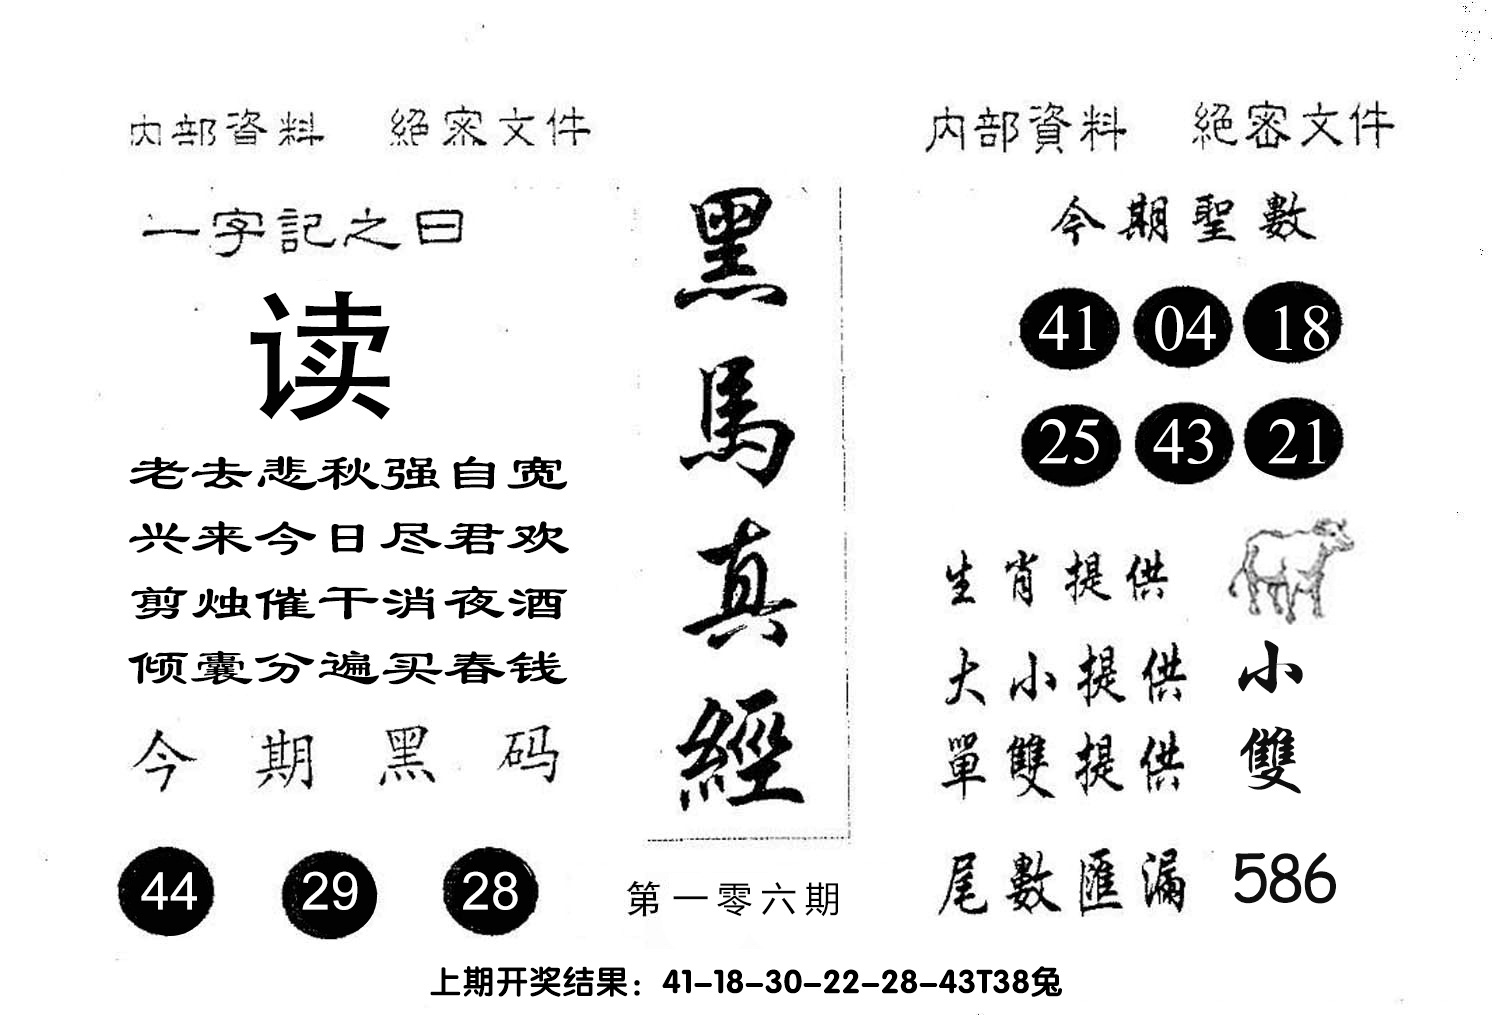 内部資料 絕密文件
一字記之曰
读
老去悲秋强自宽
兴来今日尽君欢
剪烛催干消夜酒
倾囊分遍买春钱
今期黑码
44 29 28
黑馬真經
第一零六期
内部資料 絕密文件
今期聖數
41 04 18
25 43 21
生肖提供
大小提供 小
單雙提供 雙
尾數匯漏 586
上期开奖结果：41-18-30-22-28-43T38兔